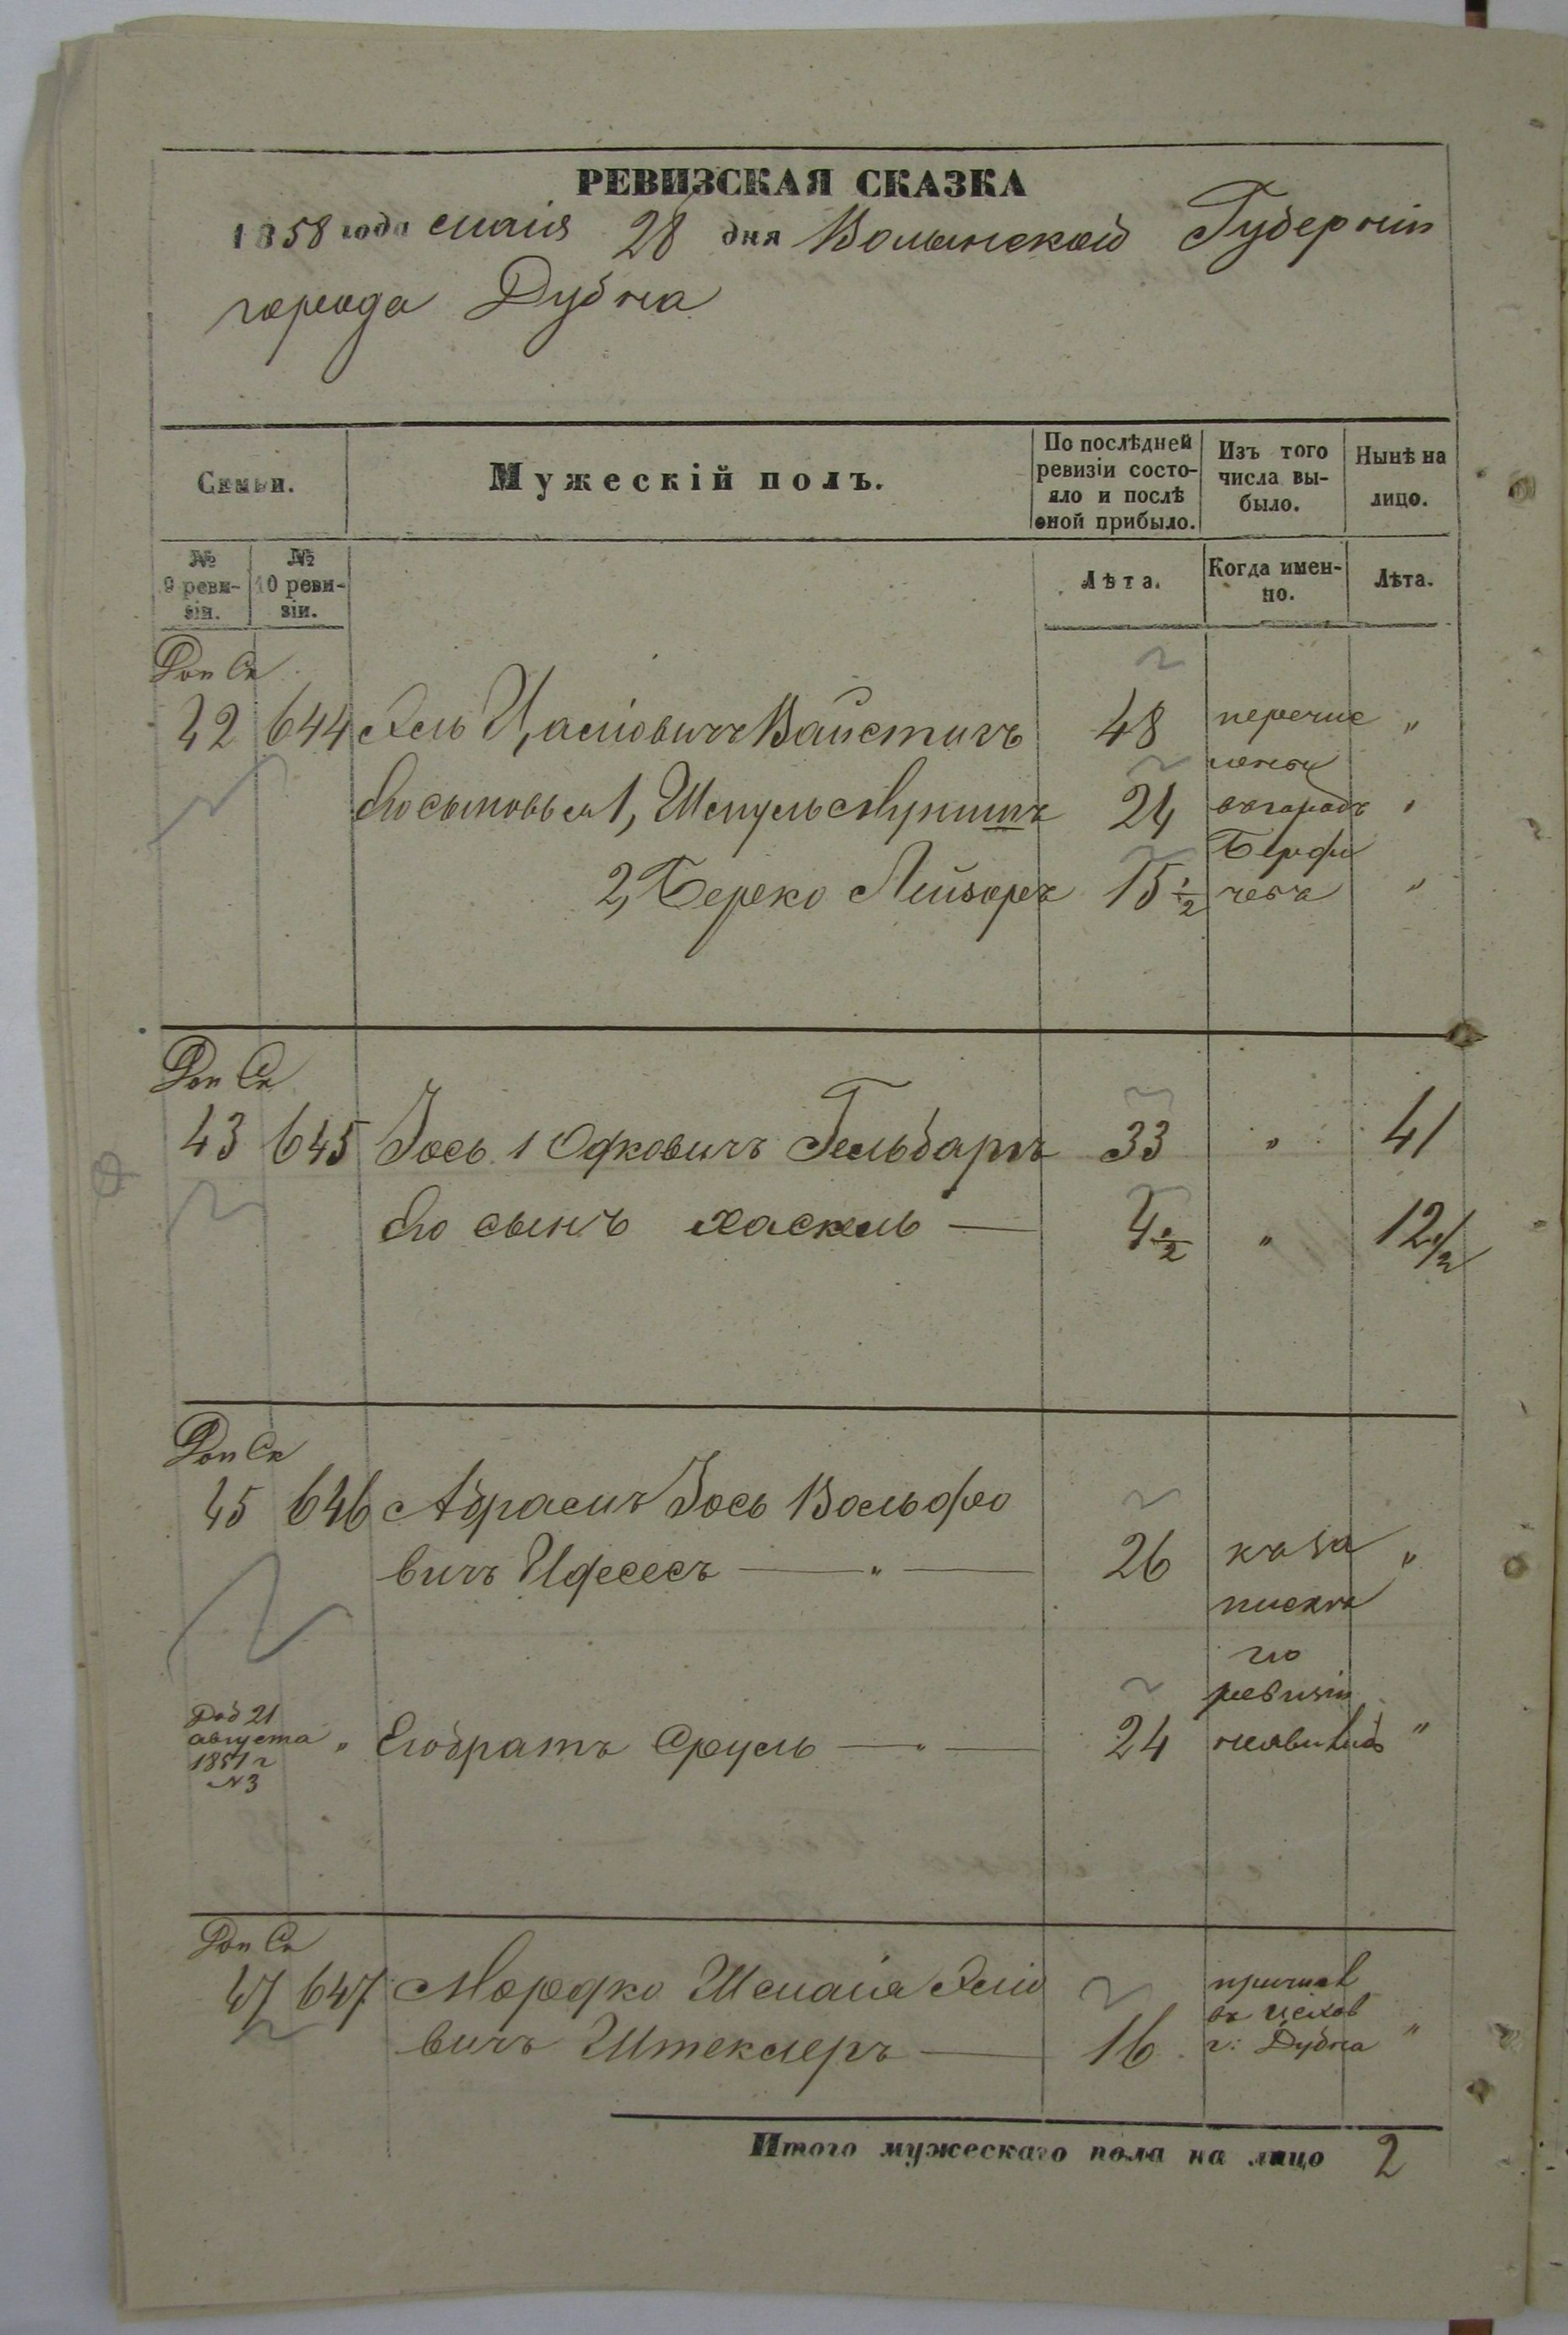 РЕВИЗСКАЯ СКАЗКА
1858 года маія 28 дня Волынской Губерніи
города Дубна
Семьи.
Мужескій полъ.
По послѣдней ревизіи состо-
яло и послѣ
оной прибыло.
Изъ того
числа вы-
было.
Нынѣ на
лицо.
№
9 реви-
зіи.
№
10 реви-
зіи.
Лѣта.
Когда имен-
но.
Лѣта.
Доп Ск
42 644 48 перечис „
лены
Его сыновья 1, Шмуль 24 въ городъ „
Берди
2, Берко Лейзоръ 15 1/2 чевъ „
Доп Ск
43 645 Іось Юдковичъ Гельбаръ 33 „ 41
Его сынъ Хаскель — 4 1/2 „ 12 1/2
Доп Ск
45 646 Абрамъ Іось Вольфо
вичъ — „ — 26 къ за „
писки
Доб 21
августа
1851 г
N 3
го
ревизіи
„ Его братъ Сруль — „ — 24 неявились „
Доп Ск
47 647 Мордко Шмаія
вичъ Штеклеръ — 16 причисл
въ цехов
г: Дубна „
Итого мужескаго пола на лицо 2